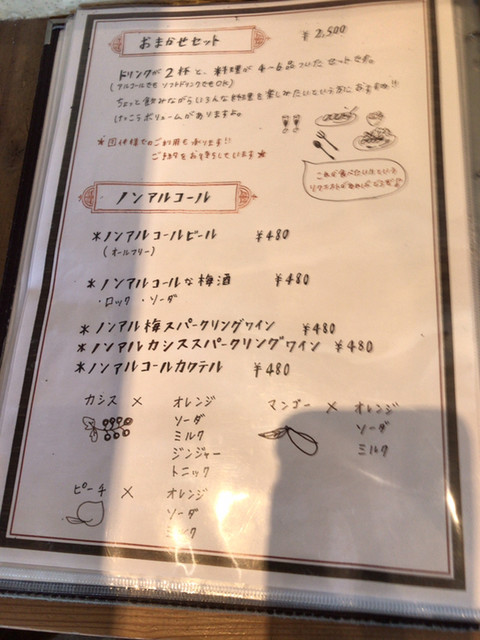 おまかせセット ¥2,500
ドリンクが2杯と、料理が4~6品ついたセットです。
(アルコールでもソフトドリンクでもOK)
ちょっと飲みながらいろんな料理を楽しみたいという方におすすめ!!
けっこうボリュームがありますよ。
*団体様でのご利用も承ります!!
ご予約をお待ちしています★
これが食べたいたいという
ノンアルコール
*ノンアルコールビール ¥480
(オールフリー)
*ノンアルコールな梅酒 ¥480
・ロック ・ソーダ
*ノンアル梅スパークリングワイン ¥480
*ノンアルカシススパークリングワイン ¥480
*ノンアルコールカクテル ¥480
カシス × オレンジ
ソーダ
ミルク
ジンジャー
トニック
マンゴー × オレンジ
ソーダ
ミルク
ピーチ × オレンジ
ソーダ
ミルク